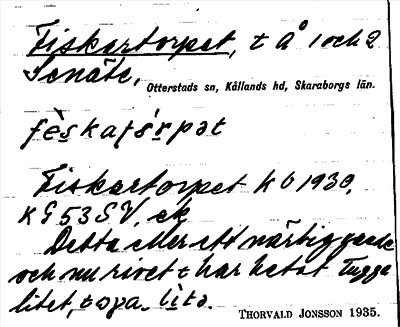 Fiskartorpet, t Å 1 och 2
Senäte,
Otterstads sn, Kållands hd, Skaraborgs län.
Fiskartorpet k 6 1930,
KG 53 SV, ek
Detta eller ett närliggande
och nu rivet t har hetat Tugga
litet, t opa. lite.
THORVALD JONSSON 1935.